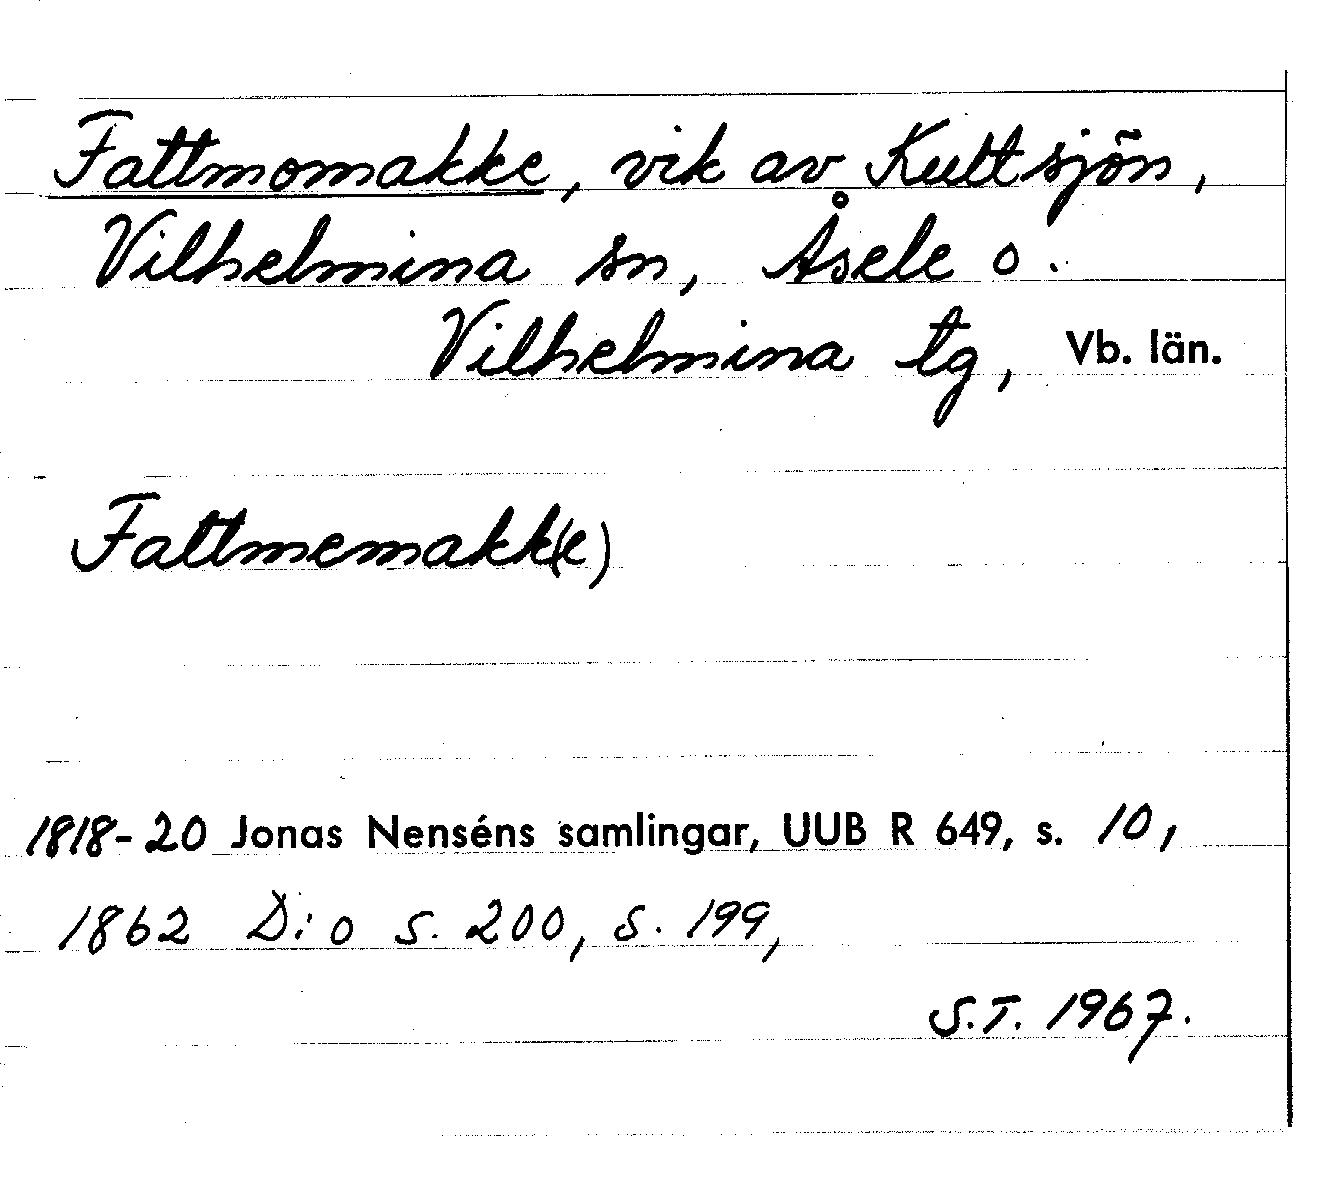 Fattmomakke, vik av Kultsjön,
Vilhelmina sn, Åsele o.
Vilhelmina tg, Vb. län.
Fattmemakk(e)
1818-20 Jonas Nenséns samlingar, UUB R 649, s. 10,
1862 D:o s. 200, s. 199,
S.T. 1967.